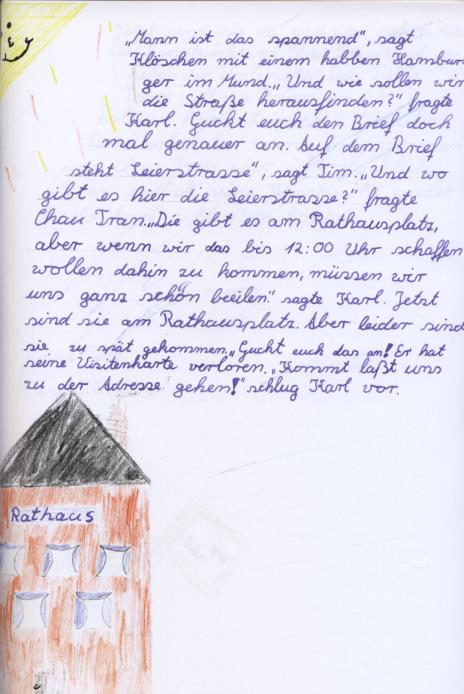 „Mann ist das spannend", sagt
Klöschen mit einem habben Hambur
ger im Mund. „Und wie sollen wir
die Straße herausfinden?" fragte
Karl. Guckt euch den Brief doch
mal genauer an. Auf dem Brief
steht Leierstrasse", sagt Tim. „Und wo
gibt es hier die Leierstrasse?" fragte
Chau Tran. „Die gibt es am Rathausplatz,
aber wenn wir das bis 12:00 Uhr schaffen
wollen dahin zu kommen, müssen wir
uns ganz schön beeilen." sagte Karl. Jetzt
sind sie am Rathausplatz. Aber leider sind
sie zu spät gekommen. „Guckt euch das an! Er hat
seine Visitenkarte verloren. „Kommt laßt uns
zu der Adresse gehen!" schlug Karl vor.
Rathaus